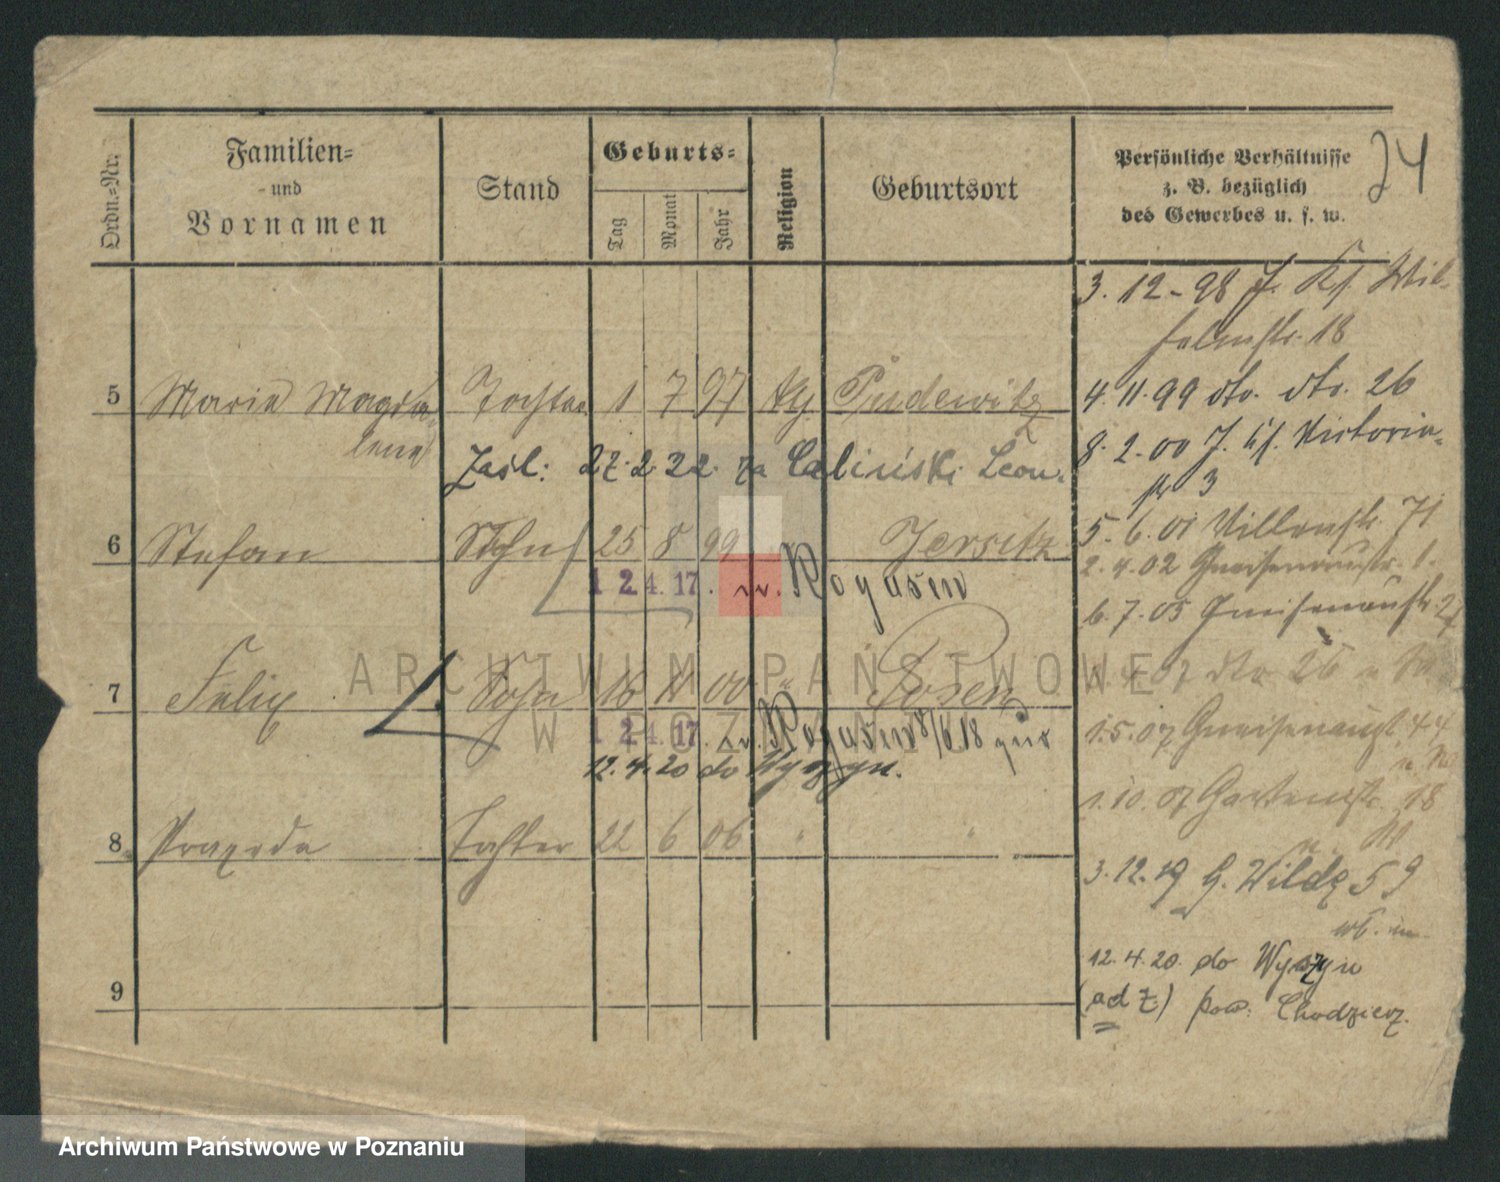 24
Ordn.-Nr.
Familien-
- und
Vornamen
Stand
Geburts-
Tag
Monat
Jahr
Religion
Geburtsort
Persönliche Verhältnisse
z. B. bezüglich
des Gewerbes u. s. w.
3. 12 - 98 J. Kf. Wil-
helmstr. 18
5 Maria Magda- Tochter 1 7 97 kg Pudewitz
lena
4. 11. 99 dto. dto. 26
Zaśl: 27. 2. 22. za Caliński Leon.
8. 2. 00 J. Kf. Victoria-
str 3
6 Stefan Sohn 25 8 99 Jersitz
5. 6. 01 Villenstr. 71
2. 4. 02 Gneisenaustr. 1.
1 2 4. 17. n. Rogasen
6. 7. 05 Gneisenaustr.
7 Felix Sohn 16 11 00 " Posen
07 dto 26
1 2 4. 17. n. Rogasen
1. 5. 07 Gneisenaustr. 44
12. 4. 20 do Wyszyn.
1. 10. 07 Gartenstr. 18
8 Praxeda Tochter 22 6 06 " "
3. 12. 19 G. Wilda 59
12. 4. 20. do Wyszyn
(ad Z.) pow: Chodzież.
9
ARCHIWUM PAŃSTWOWE
W POZNANIU
Archiwum Państwowe w Poznaniu